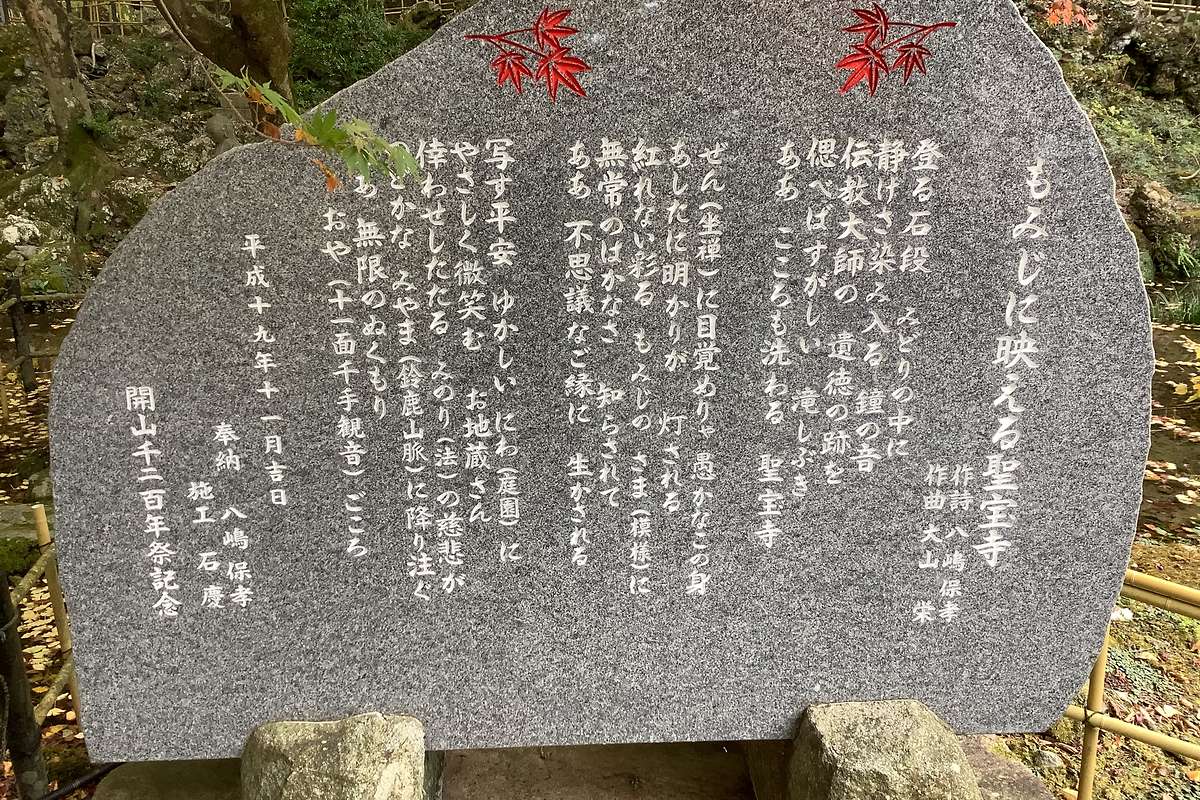 もみじに映える聖宝寺
作詩 八嶋保孝
作曲 大山 栄
登る石段 みどりの中に
静けさ染み入る 鐘の音
伝教大師の 遺徳の跡を
偲べばすがしい 滝しぶき
ああ こころも洗わる 聖宝寺
ぜん(坐禅)に目覚めりゃ 愚かなこの身
あしたに明かりが 灯される
紅れない彩る もみじの さま(模様)に
無常のはかなさ 知らされて
ああ 不思議なご縁に 生かされる
写す平安 ゆかしい にわ(庭園)に
やさしく微笑む お地蔵さん
倖わせしたたる みのり(法)の慈悲が
どかな みやま(鈴鹿山脈)に降り注ぐ
あ 無限のぬくもり
おや(十一面千手観音)ごころ
平成十九年十一月吉日
奉納 八嶋保孝
施工 石慶
開山千二百年祭記念